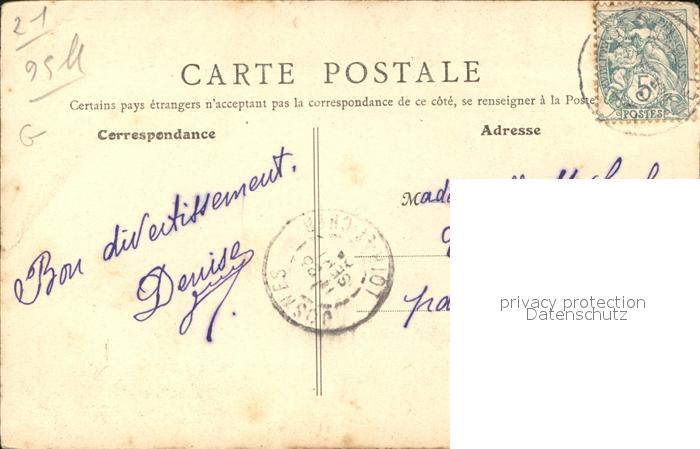 21
95
G
CARTE POSTALE
Certains pays étrangers n'acceptant pas la correspondance de ce côté, se renseigner à la Poste
Correspondance
Adresse
5c
POSTES
Bon divertissement.
Denise
privacy protection
Datenschutz